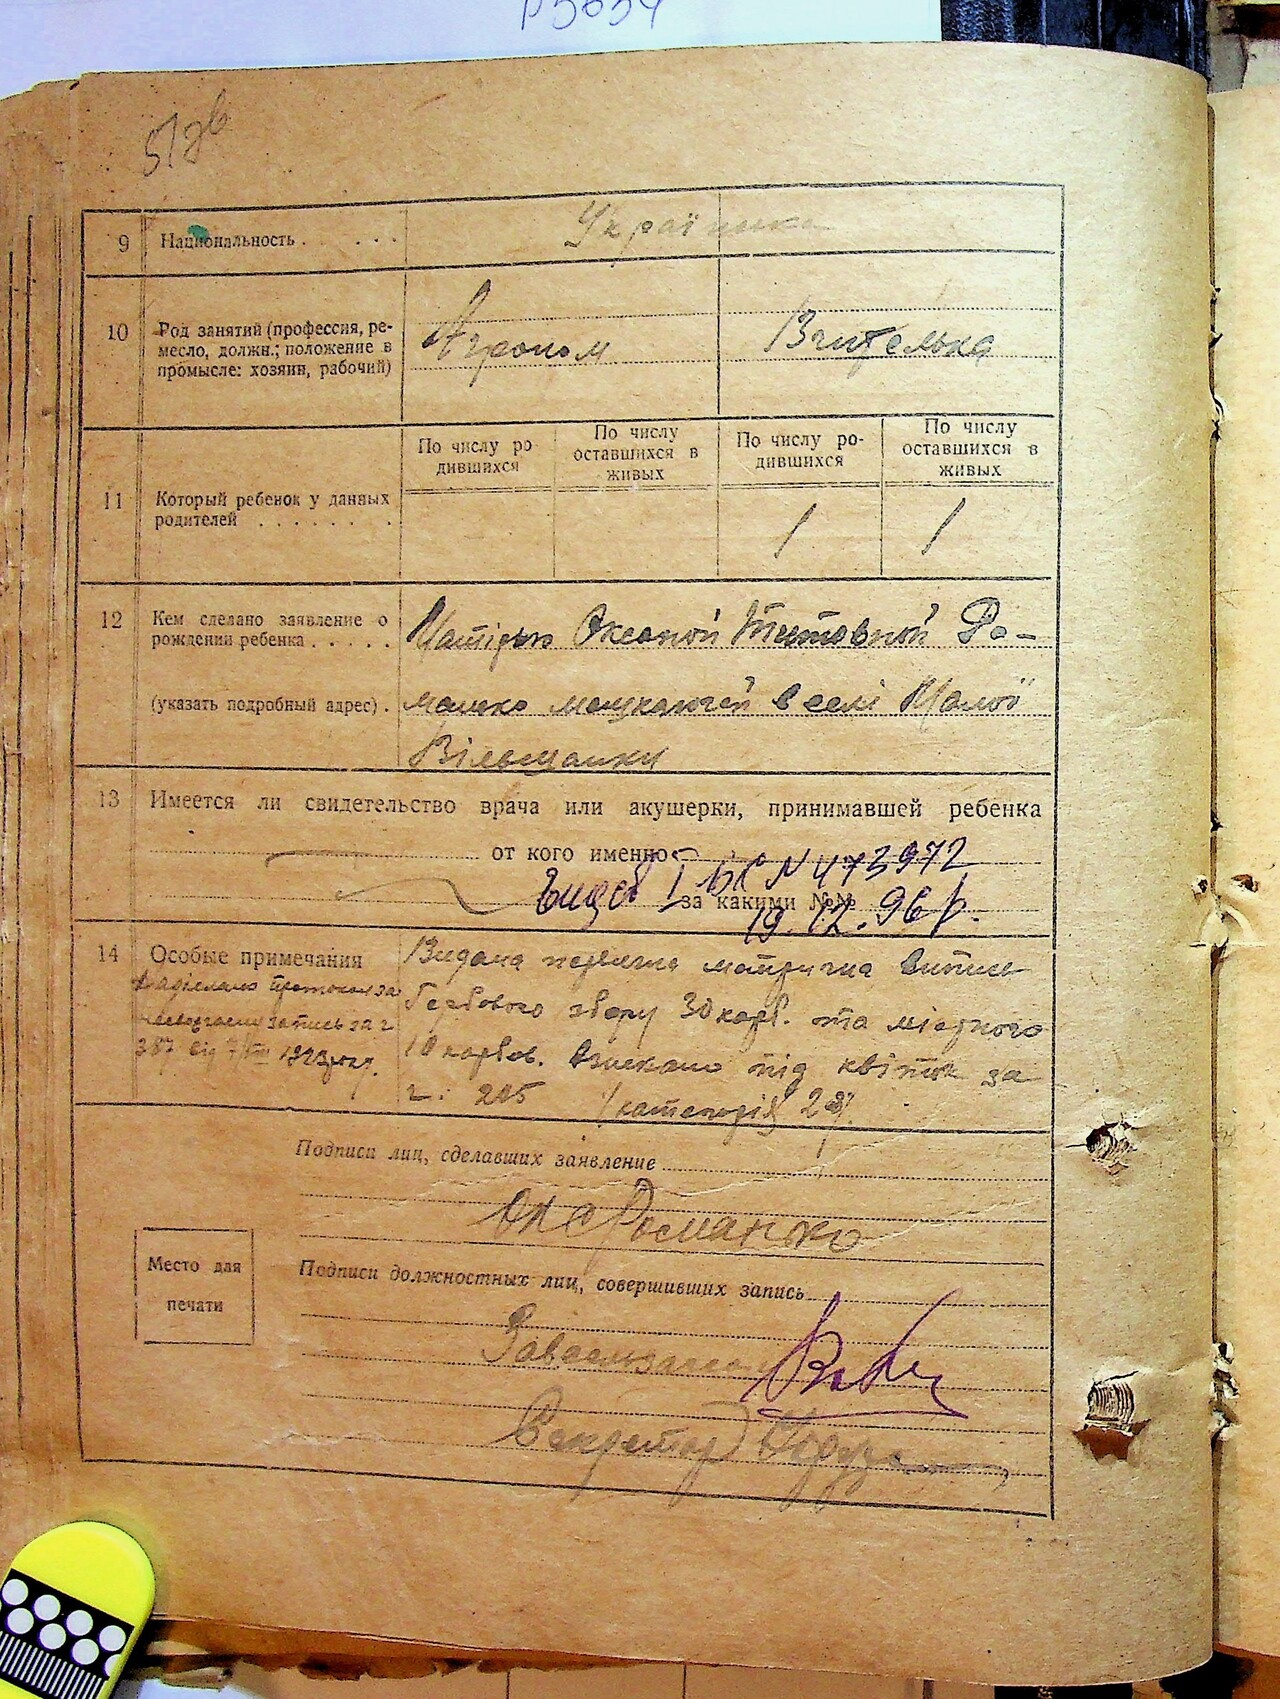 Р5654
51зв
9 Национальность . . . . Українка
10 Род занятий (профессия, ре-
месло, должн.; положение в
промысле: хозяин, рабочий)
Агроном
Вчителька
По числу ро-
дившихся
По числу
оставшихся в
живых
По числу ро-
дившихся
По числу
оставшихся в
живых
11 Который ребенок у данных
родителей . . . . . . .
1 1
12 Кем сделано заявление о
рождении ребенка . . . . .
(указать подробный адрес) .
Матірью Оксаной Титовной Ро-
манко мешкаючей в селі Малої
Вільшанки
13 Имеется ли свидетельство врача или акушерки, принимавшей ребенка
от кого именно
I БК N 473972
за какими №№
19.12.96р.
14 Особые примечания
протокол за
запись за ч
387 від 7/VIII 1923 року.
Видана первична матрична випись
Гербового збору 30 карб. та місцевого
10 карбов. взискано під квіток за
ч: 205 /категорія 2я/.
Подписи лиц, сделавших заявление
Окс Романко
Место для
печати
Подписи должностных лиц, совершивших запись
Завсельзагсом
Секретар